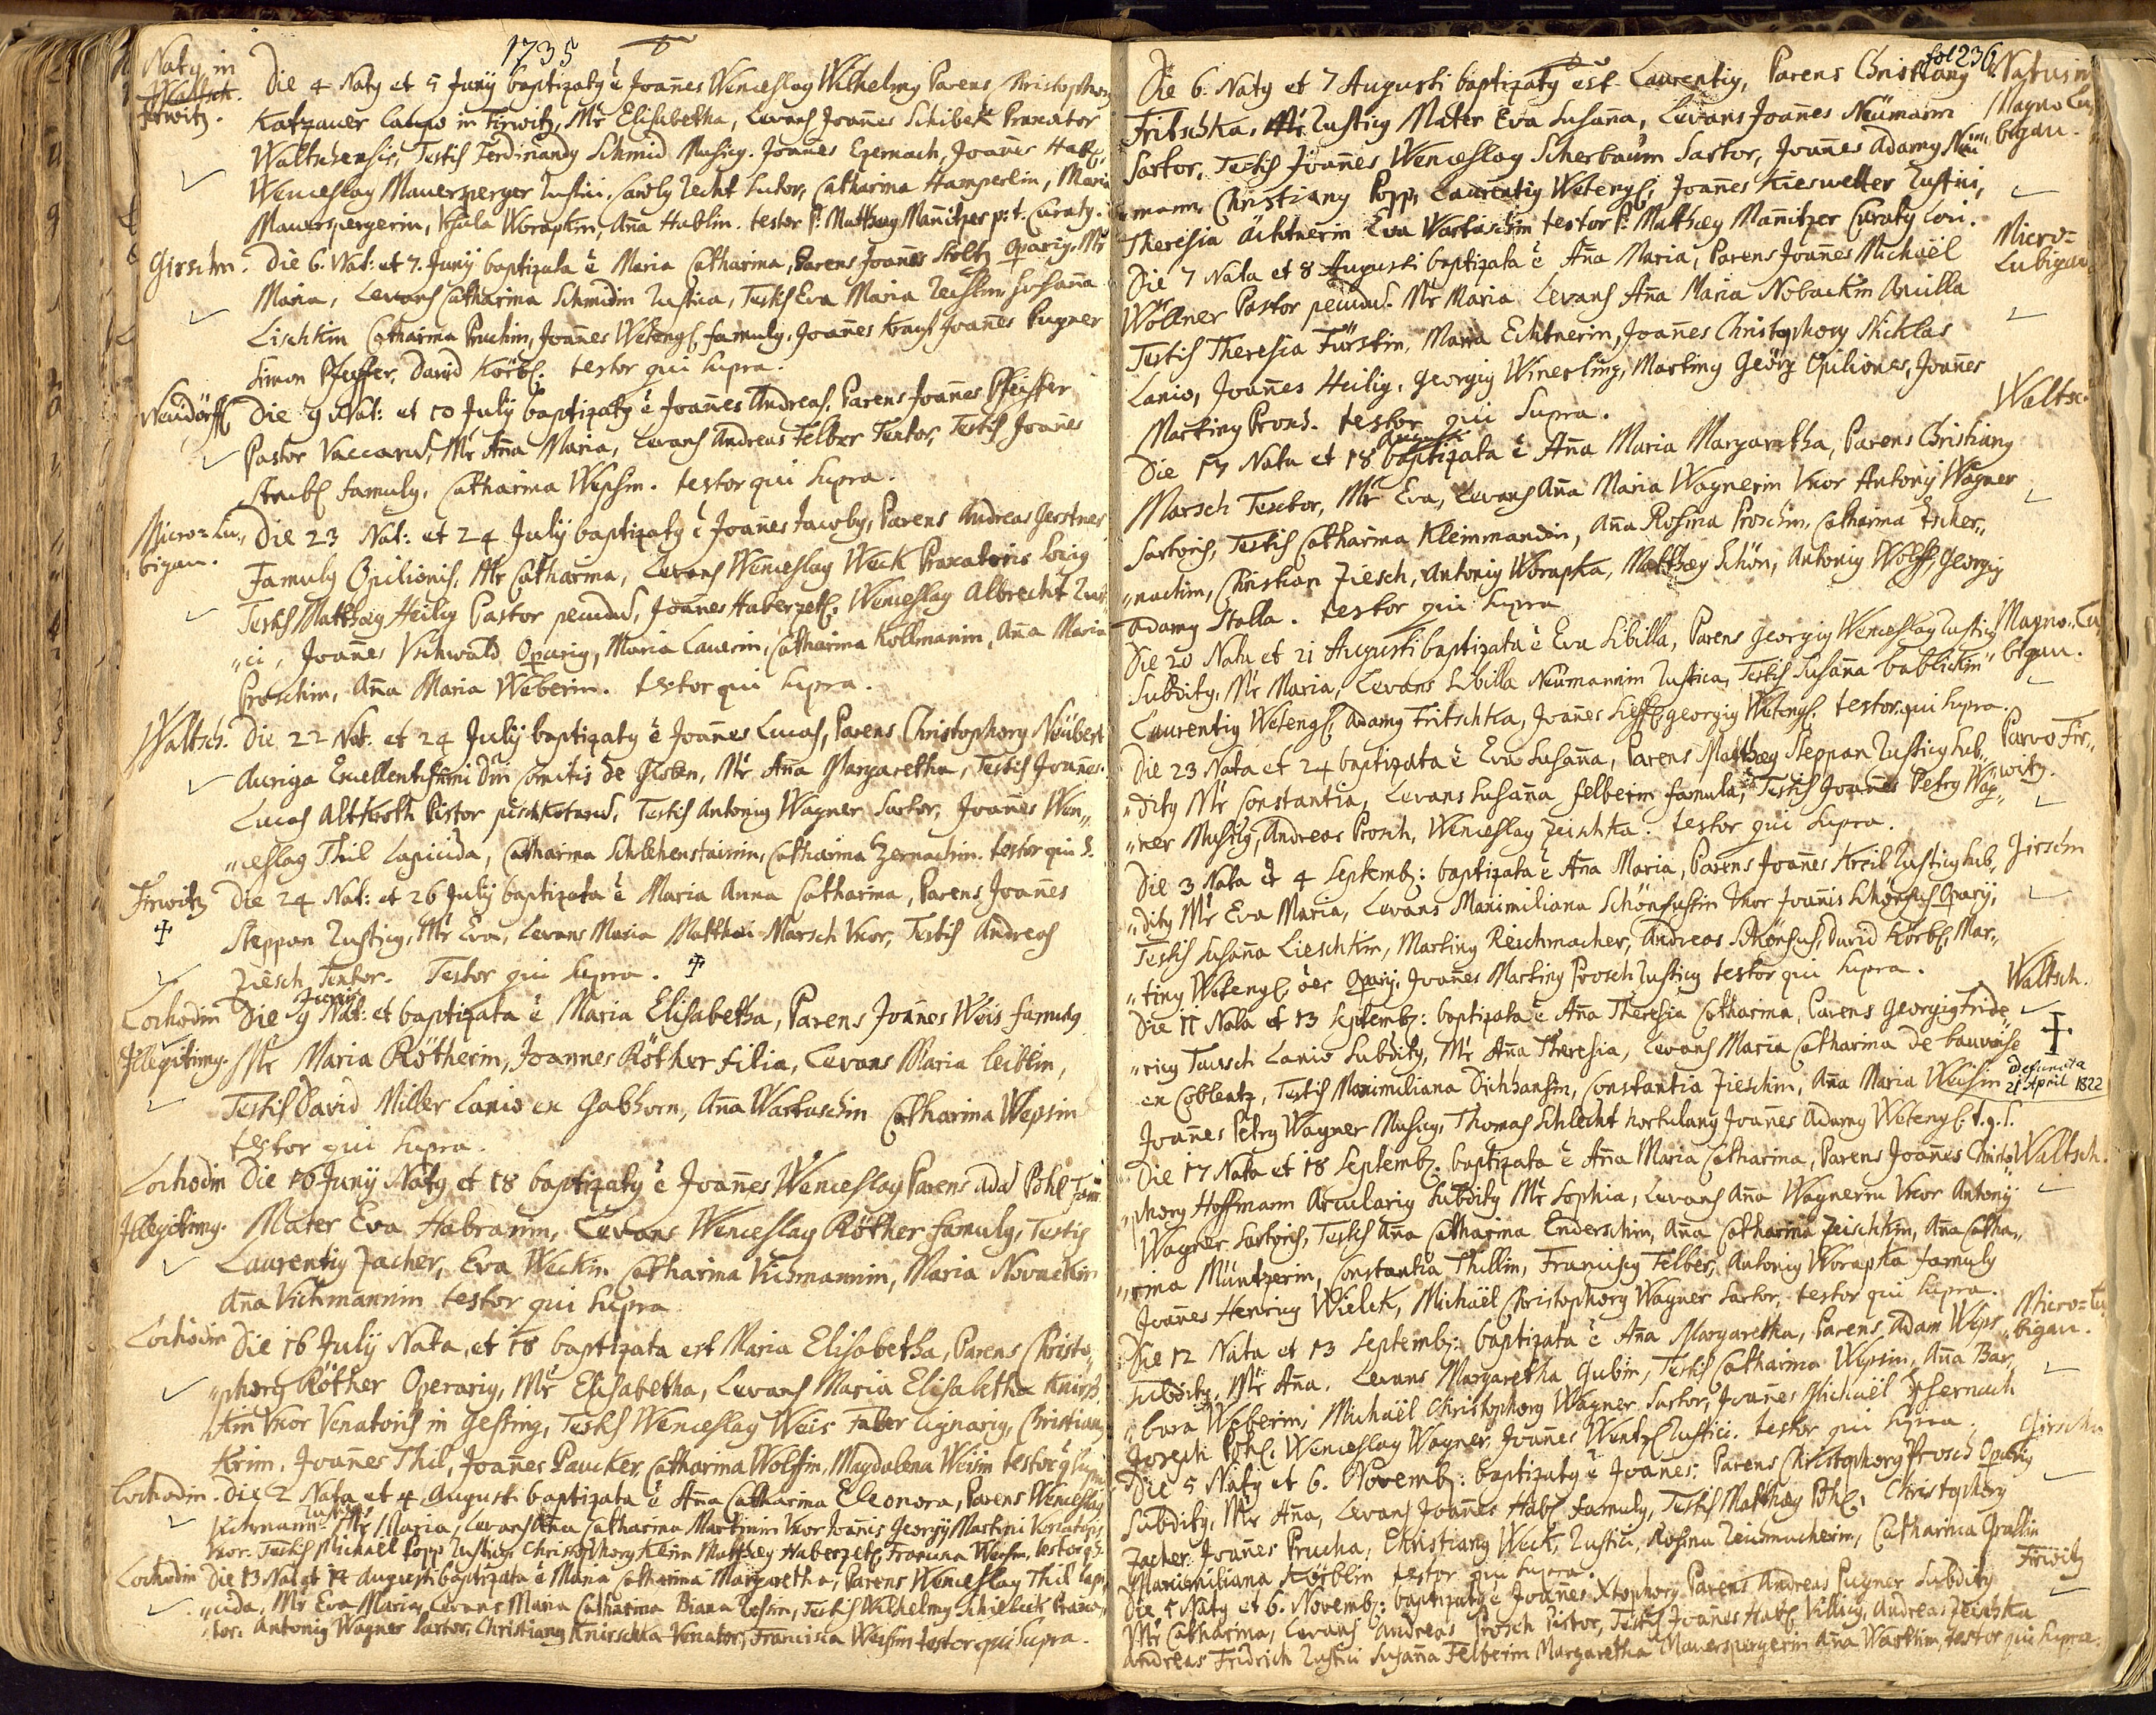 1735
Natꝯ in
Waltsch.
Firwitz.
Die 4 Natꝯ et 5 Junÿ baptizatꝯ ẽ Joañes Wenceslaꝯ Wilhelmꝯ Parens Christophorꝯ
Katzauer in Firwitz, Mr̃ Elisabetha, Levans Joañes Schibek Braxator
Waltschensis, Testis Ferdinandꝯ Schmid Musicꝯ. Joañes Ezernach, Joañes Habl,
Wenceslaꝯ Mauersperger Rustici, Carolꝯ Zecht Sutor, Catharina Hamperlin, Maria
Mauerspergerin, Worapkin, Aña Hablin. testor P: Matthæꝯ Mañitzer p: t. Curatꝯ.
Girschn. Die 6. Nat: et 7. Junÿ baptizata ẽ Maria Catharina, Parens Joañes Stoltz Oparꝯ, Mr̃
Maria, Levans Catharina Schmidin Rustica, Testis Eva Maria Susaña
Lischkin Catharina Pruchin, Joañes Wetengl famulꝯ, Joañes Kraus Joañes Pugner
Simon Pfeiffer, David Körbl. testor qui supra.
Neudörffl Die 9 Nat: et 10 Julÿ baptizatꝯ ẽ Joañes Andreas, Parens Joañes Pfeiffer
Pastor Vaccarꝯ, Mr̃ Aña Maria, Levans Andreas Felber Textor, Testis Joañes
Steibl famulꝯ, Catharina Wepsin. testor qui supra.
Micro=Lu„ Die 23 Nat: et 24 Julÿ baptizatꝯ ẽ Joañes Jacobꝯ, Parens Andreas Gerstner
„bigan. Famulꝯ Opilionis, Mr̃ Catharina, Levans Wenceslaꝯ Weck Braxatoris
Testis Matthæꝯ Heilig Pastor pecudꝯ, Joañes Haberzetl, Wenceslaꝯ Albrecht Rus
„ci, Joañes Vchwald Oparꝯ, Maria Lauerin, Catharina Kollmanin, Aña Maria
Proschin, Aña Maria Weberin. testor qui supra.
Waltsch. Die 22 Nat. et 24 Julÿ baptizatꝯ ẽ Joañes Lucas, Parens Christophorꝯ Neübert
Auriga Excellentissimi Dñi Comitis de Globen, Mr̃ Aña Margaretha, Testis Joañes
Lucas Altkroth Pistor, Testis Antoniꝯ Wagner Sartor, Joañes Wen„
„ceslaꝯ Thil Lapicida, Catharina Schlehenstainin, Catharina Zernachin. testor qui S.
Firwitz Die 24 Nat: et 26 Julÿ baptizata ẽ Maria Anna Catharina, Parens Joañes
Steppan Rusticꝯ, Mr̃ Eva, Levans Maria Matthæi Marsch Vxor, Testis Andreas
Ziesch Textor. Testor qui supra.
Junÿ
Lochodin Die 9 Nat: et baptizata ẽ Maria Elisabetha, Parens Joañes Weis famulꝯ
Illegitimꝯ. Mr̃ Maria Rötherin, Joannes Röther filia, Levans Maria Leiblin,
Testis David Miller Lanio ex Gabhorn, Aña Wartuschin Catharina Wepsin
testor qui supra.
Lochodin Die 16 Junÿ Natꝯ et 18 baptizatꝯ ẽ Joañes Wenceslaꝯ Parens Adã Pohl Fam.
Illegitimꝯ. Mater Eva Habranin, Levans Wenceslaꝯ Röther famulꝯ, Testis
Laurentiꝯ Zacher, Eva Weckin Catharina Vichmannin, Maria Novackin
Aña Vichmannin testor qui supra
Lochodin Die 16 Julÿ Nata, et 18 baptizata est Maria Elisabetha, Parens Christo„
„phorꝯ Röther Operariꝯ, Mr̃ Elisabetha, Levans Maria Elisabetha Knirsch
kin Vxor Venatoris in Gessing, Testis Wenceslaꝯ Weis Faber lignariꝯ, Christianꝯ
Krim, Joañes Thil, Joañes Paucker, Catharina Wolfin, Magdalena Weisin testor q supra
Lochodin. Die 2 Nata et 4 Augusti baptizata ẽ Aña Catharina Eleonora, Parens Wenceslaꝯ
Vichmann Mr̃ Maria, Levans Aña Catharina Martinin Vxor Joañis Georgÿ Martini Venatoris
Vxor. Testis Michael Popp Rusticꝯ Christophorꝯ Klein Matthæꝯ Haberzetl, Francisca Weisin, testor q S.
Lochodin Die 13 Nat et 14 Augusti baptizata ẽ Maria Catharina Margaretha, Parens Wenceslaꝯ Thil lapi„
„cida, Mr̃ Eva Maria, Levans Maria Catharina Biana, Testis Wilhelmꝯ Braxa„
„tor. Antoniꝯ Wagner Sartor, Christianꝯ Knirschka Venator, Francisca Weisin testor qui supra.
fol 236
Die 6. Natꝯ et 7 Augusti baptizatꝯ est Laurentiꝯ, Parens Christianꝯ Natus in
Fritschka, Rusticꝯ Mater Eva Susaña, Levans Joañes Neümann Magno Lu
Sartor, Testis Joañes Wenceslaꝯ Scherbaum Sartor, Joañes Adamꝯ Neu bigan.
„mann, Christianꝯ Popp, Laurentiꝯ Wetengl, Joañes Kieswetter Rustici,
Theresia Achtnerin Eva Wartuschin testor P: Matthæꝯ Mañitzer Curatꝯ Loci.
Die 7 Nata et 8 Augusti baptizata ẽ Aña Maria, Parens Joañes Michaël Micro=
Wöllner Pastor pecudꝯ. Mr̃ Maria Levans Aña Maria Nobackin Ancilla Lubigan
Testis Theresia Fürstin, Maria Echtnerin, Joañes Christophorꝯ Nicklas
Lanio, Joañes Heilig, Georgiꝯ Winerling, Martinꝯ Georg Opiliones, Joañes
Martinꝯ Prosch. testor qui supra.
Augusti
Die 17 Nata et 18 baptizata ẽ Aña Maria Margaretha, Parens Christianꝯ Waltsc.
Marsch Textor, Mr̃ Eva, Levans Aña Maria Wagnerin Vxor Antonÿ Wagner
Sartoris, Testis Catharina Kleinmandin, Aña Rosina Proschin, Catharina Tscher„
„nachin, Christian Ziesch, Antoniꝯ Worapka, Matthæꝯ Schön, Antoniꝯ Wolff, Georgiꝯ
Adamꝯ Stolla. testor qui supra
Die 20 Nata et 21 Augusti baptizata ẽ Eva Sibilla, Parens Georgiꝯ Wenceslaꝯ Rusticꝯ Magno Lu
Subditꝯ, Mr̃ Maria, Levans Sibilla Neumannin Rustica, Testis Susaña Bablickin bigan.
Laurentiꝯ Wetengl, Adamꝯ Fritschka, Joañes Georgiꝯ Wetengl. testor qui supra.
Die 23 Nata et 24 baptizata ẽ Eva Susaña, Parens Matthæꝯ Steppan Rusticꝯ sub„ Parvo Fir„
„ditꝯ Mr̃ Constantia, Levans Susaña Felberin famula, Testis Joañes Petrꝯ Wag„ witz.
„ner Musicꝯ, Andreas Prosch, Wenceslaꝯ Zeischka. testor qui supra.
Die 3 Nata et 4 Septemb: baptizata ẽ Aña Maria, Parens Joañes Kreil Rusticꝯ sub„ Girschn
„ditꝯ Mr̃ Eva Maria, Levans Maximiliana Schönfussin Vxor Joañis Schönfus Oparÿ,
Testis Susaña Lieschkin, Martinꝯ Reichmacher, Andreas Schönfus, David Körbl, Mar„
„tinꝯ Wetengl Oparÿ, Joañes Martinꝯ Prosch Rusticꝯ testor qui supra.
Die 11 Nata et 13 Septemb: baptizata ẽ Aña Theresia Catharina, Parens Georgiꝯ Fride„ Waltsch.
„ricꝯ Tausch Lanio Subditꝯ, Mr̃ Aña Theresia, Levans Maria Catharina de Bauvoise
ex Coblentz, Testis Maximiliana Dichhansin, Constantia Zieschin, Aña Maria Weisin defuncta 21 April 1822
Joañes Petrꝯ Wagner Musicꝯ, Thomas Schlecht hortulanꝯ Joañes Adamꝯ Wetengl t. q. S.
Die 17 Nata et 18 Septemb: baptizata ẽ Aña Maria Catharina, Parens Joañes Christo Waltsch.
„phorꝯ Hoffmann Arculariꝯ Subditꝯ Mr̃ Sophia, Levans Aña Wagnerin Vxor Antonÿ
Wagner Sartoris, Testis Aña Catharina Enderschin, Aña Catharina Zeischkin, Aña Catha„
„rina Müntzerin, Constantia Thillin, Franciscꝯ Felber, Antoniꝯ Worapka famulꝯ
Joañes Henricꝯ Wielck, Michaël Christophorꝯ Wagner Sartor, testor qui supra.
Die 12 Nata et 13 Septemb: baptizata ẽ Aña Margaretha, Parens Adam Weps Micro=Lu
Subditꝯ, Mr̃ Aña, Levans Margaretha Gubin, Testis Catharina Wepsin, Aña Bar bigan.
„bara Weberin, Michaël Christophorꝯ Wagner Sartor, Joañes Michaël Tschernach
Joseph Pohl, Wenceslaꝯ Wagner, Joañes Wentzl Rustici. testor qui supra.
Die 5 Natꝯ et 6. Novemb: baptizatꝯ ẽ Joañes: Parens Christophorꝯ Prosch Oparꝯ Girschn
Subditꝯ, Mr̃ Aña, Levans Joañes Habl famulꝯ, Testis Matthæꝯ Pohl, Christophorꝯ
Zacher, Joañes Prucha, Christianꝯ Weck, Rustici, Rosina Reichmacherin, Catharina Grallin
Maximiliana Körblin testor qui supra.
Die 5 Natꝯ et 6. Novemb: baptizatꝯ ẽ Joañes Xtophorꝯ Parens Andreas Pugner Subditꝯ Firwitz
Mr̃ Catharina, Levans Andreas Prosch Pistor, Testis Joañes Habl Villicꝯ, Andreas Zeischka
Andreas Fridrich Rustici Susaña Felberin Margaretha Mauerspergerin Aña Warthin, testor qui supra.